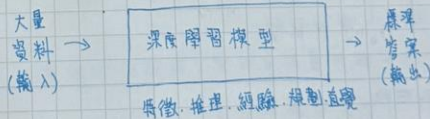 大量
資料 →
(輸入)
深度學習模型
→ 標準
答案
(輸出)
特徵、推理、經驗、規劃、直覺